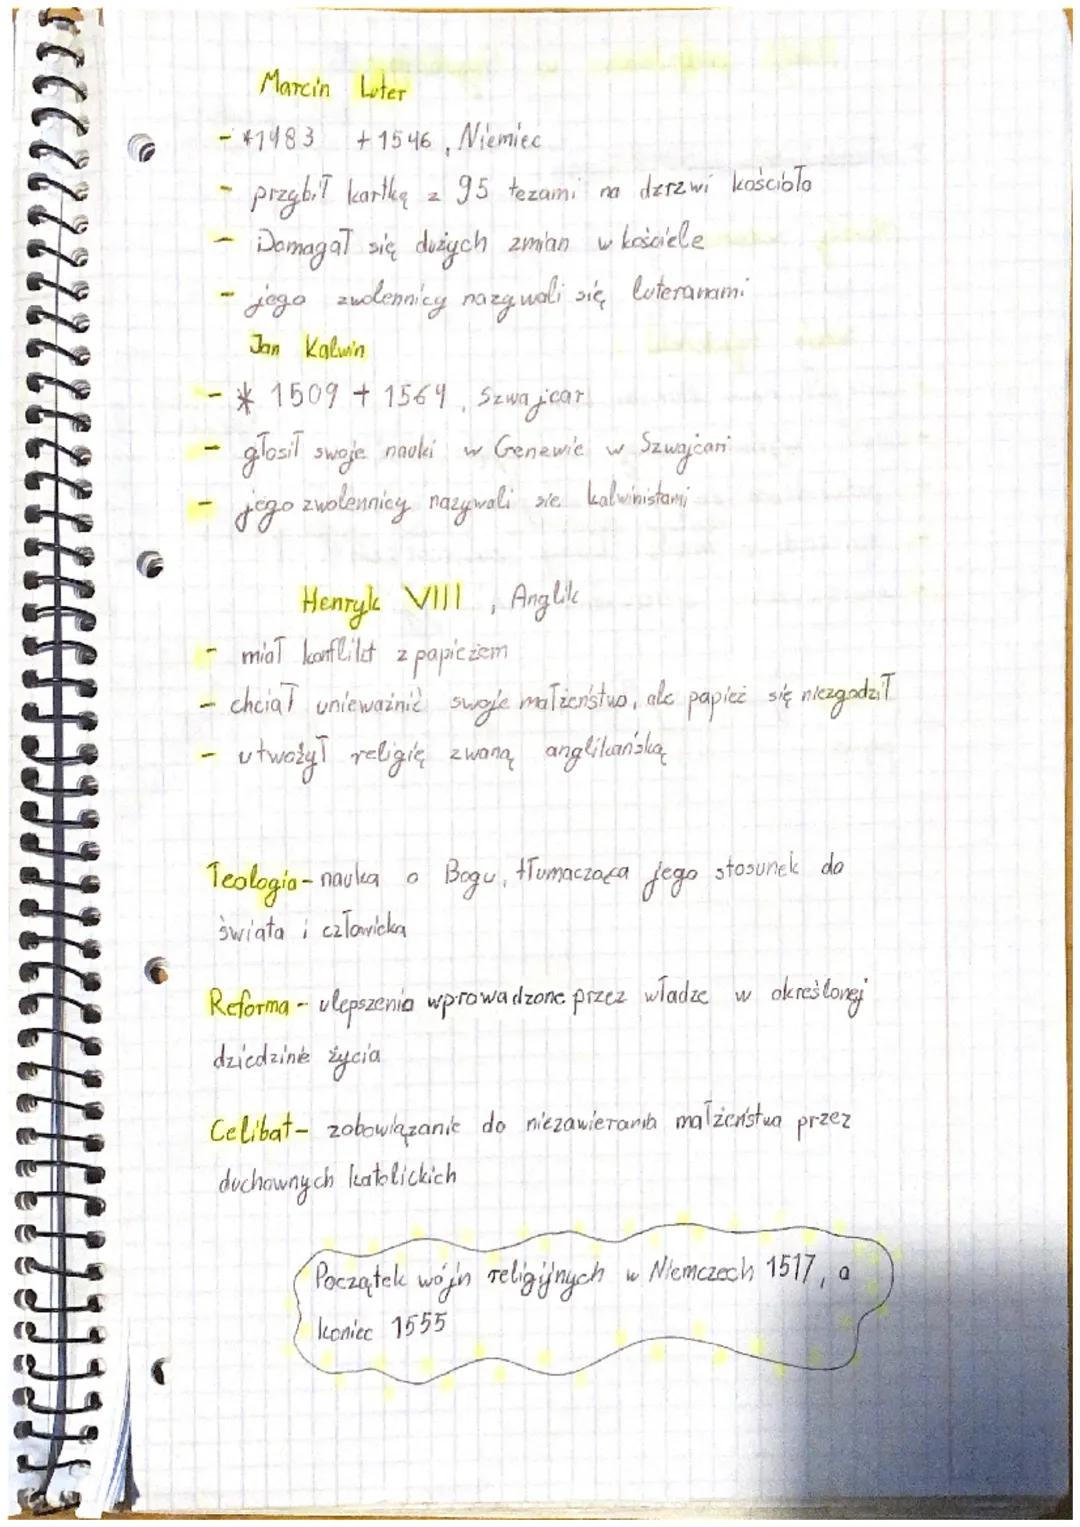 Marcin Luter
- *1483 +1546, Niemiec
- przybił kartkę z 95 tezami na dzrzwi kościoła
- Domagał się dużych zmian w kościele
- jego zwolennicy nazywali się luteranami
Jan Kalwin
- * 1509 + 1564, Szwajcar
- głosił swoje nauki w Genewie w Szwajcari
- jego zwolennicy nazywali sie kalwinistami
Henryk VIII, Anglik
- miał konflikt z papieżem
- chciał unieważnić swoje małżeństwo, ale papież się niezgodził
- utwożył religię zwaną anglikańską
Teologia - nauka o Bogu, tłumacząca jego stosunek do
świata i człowieka
Reforma - ulepszenia wprowadzone przez władze w określonej
dziedzinie życia
Celibat - zobowiązanie do niezawierania małżeństwa przez
duchownych katolickich
Początek wojn religijnych w Niemczech 1517, a
koniec 1555